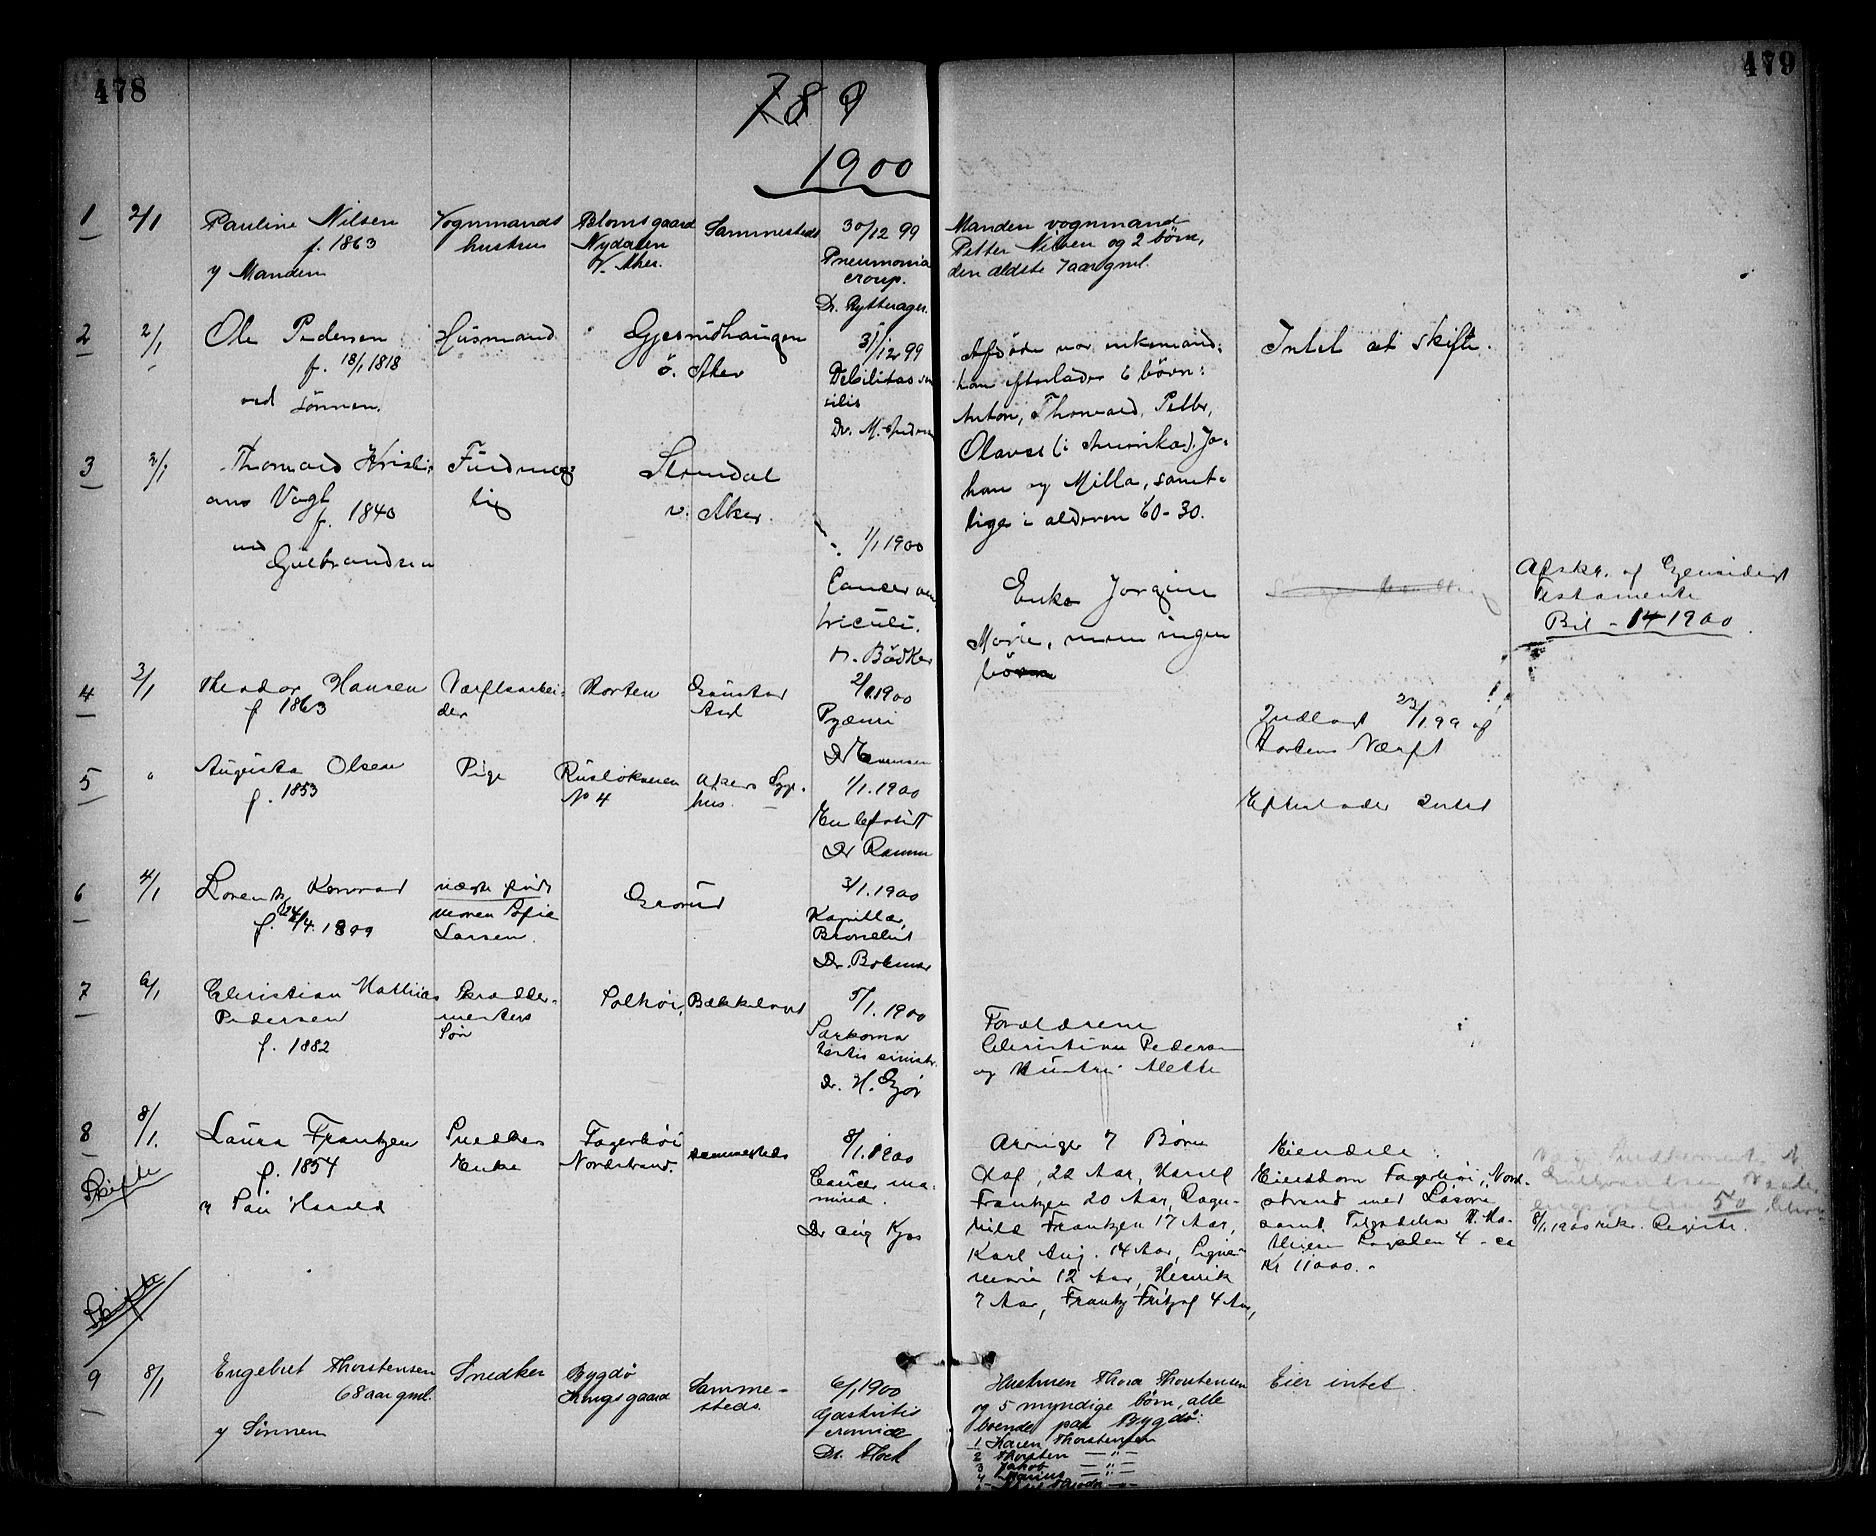 478
479
789
1900
1
2/1
Pauline Nilsen
f. 1863
v Manden
Vognmands
hustru
Blomsgaard
Nydalen
V. Aker.
Sammesteds
30/12 99
Pneumonia
croup.
Dr. Rytterager.
Manden vognmand
Petter Nilsen og 2 børn,
den ældste 7 aar gml.
2
2/1
Ole Pedersen
f. 18/1 1818
ved Sønnen.
Husmand
Gjesrudhaugen
ö. Aker
31/12 99
Debilitas se
nilis
Dr. M.
Afdøde var enkemand;
han efterlader 6 börn:
Anton, Thorvald, Petter,
Olavse (i Amerika), Jo-
han og Milla, samt-
lige i alderen 60-30.
Intet at skifte.
3
2/1
Thorvald Kristi-
ans Vogt
f. 1840
ved Gulbrandsen
v. Aker.
1/1 1900
Cancer ven
triculi.
Dr. Bödker
Enke Jorgine
Marie, men ingen
börn
Afskr. af Gjensidigt
Testamente
Bil - 14 1900.
4
3/1
Theodor Hansen
f 1863
Værftsarbei-
der
Horten
Gaustad
Asyl
2/1.1900
Pyæmi
Indlagt 23/1.99 af
Hortens Værft
5
"
Augusta Olsen
f. 1853
Pige
Ruseløkveien
No 4
Akers Syge-
hus.
1/1.1900
Dr Ramm
Efterlader Intet
6
4/1
Lorentz Konrad
f. 24/4. 1899
moren Sofie
Larsen.
Grorud
3/1.1900
Kapillær
Bronchit
Dr.
7
6/1
Christian Mathias
Pedersen
f. 1882
Skrædder-
mesters
Søn
Solhöi, Bækkelaget
5/1. 1900
Sarkoma
testis sinistr.
Dr. H. Gjör
Forældrene
Christian Pedersen
og Hustru Alette
8
8/1.
Skifte
Laura Frantzen
f. 1854
v Søn Harald
Snedker
Enke
Fagerhöi
Nordstrand.
sammesteds
8/1.1900
Cancer ma-
mma.
Dr Aug Kjos
Arvinger 7 Børn
Olaf, 22 Aar, Harald
Frantzen 20 Aar, Ragn-
hild Frantzen 17 Aar,
Karl Aug. 14 Aar, Signe
Marie 12 Aar, Henrik
7 Aar, Frantz Fritzof 4 Aar,
Eiendele:
Eiendom Fagerhöi, Nord-
strand med Løsøre
samt 4 - ca
Kr 11000.-
8/1.1900 Registr.
Skifte
9
8/1
Engebret Thorstensen
68 aar gml.
v Sønnen
Snedker
Bygdö
Kongsgaard
Samme-
steds.
6/1 1900
Gastritis
cronica
Dr. Floch
Hustruen Thora Thorstensen
og 5 myndige børn, alle
boende paa Bygdö:
1 Karen Thorstensen
2 Thorsten — " —
3 Jakob — " —
4 Marius — " —
Eier intet.